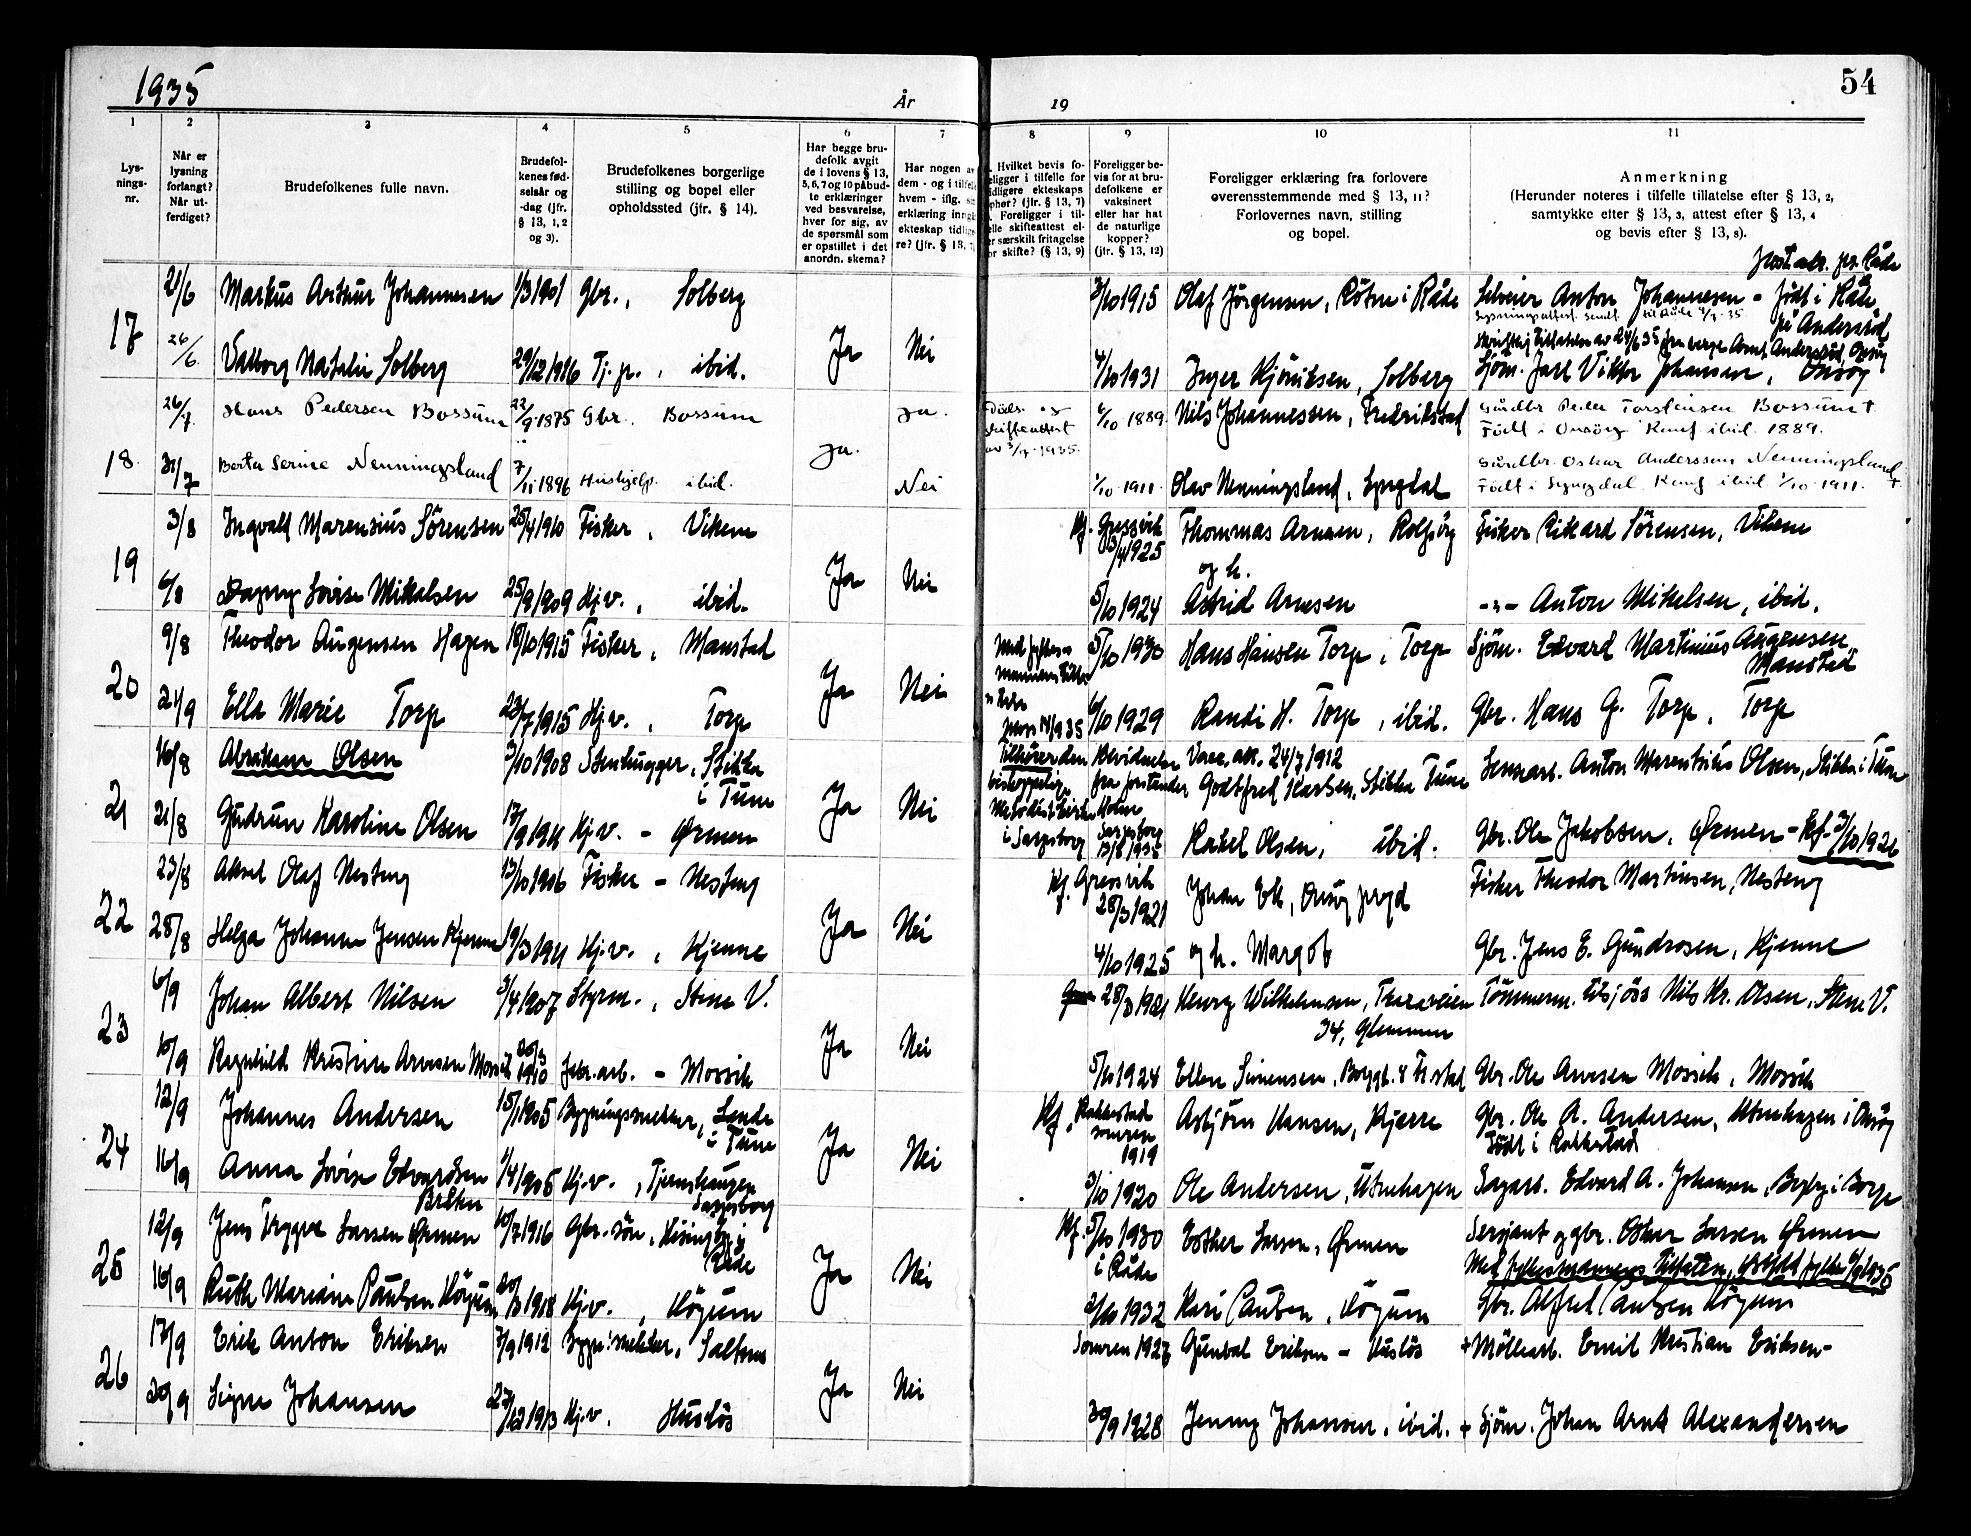 1935
År
19
54
1
2
3
4
5
6
7
8
9
10
11
Lys-
nings-
nr.
Når er
lysning
forlangt?
Når ut-
ferdiget?
Brudefolkenes fulle navn.
Brudefol-
kenes fød-
selsår og
-dag (jfr.
§ 13, 1, 2
og 3).
Brudefolkenes borgerlige
stilling og bopel eller
opholdssted (jfr. § 14).
Har begge bru-
defolk avgit
de i lovens § 13,
5, 6, 7 og 10 påbud-
te erklæringer
ved besvarelse,
hver for sig, av
de spørsmål som
er opstillet i det
anordn. skema?
Har nogen av
dem - og i tilfelle
hvem - iflg. sin
erklæring inngått
ekteskap tidlige-
re? (jfr. § 13, 7)
Hvilket bevis fo-
religger i tilfelle for
tidligere ekteskaps
ophør? (jfr. § 13, 7)
Foreligger i til-
felle skifteattest el-
ler særskilt fritagelse
for skifte? (§ 13, 9)
Foreligger be-
vis for at bru-
defolkene er
vaksinert
eller har hat
de naturlige
kopper?
(jfr. § 13, 12)
Foreligger erklæring fra forlovere
overensstemmende med § 13, 11?
Forlovernes navn, stilling
og bopel.
Anmerkning
(Herunder noteres i tilfelle tillatelse efter § 13, 2,
samtykke efter § 13, 3, attest efter § 13, 4
og bevis efter § 13, 8).
17
21/6 Markus Artur Johannesen 1/3 1901 Gbr., Solberg 3/10 1915 Olaf Jørgensen, i Råde Anton Johannesen - født i Råde
26/6 Valborg Natalie Solberg 29/12 1916 Tj.p., ibid. Ja Nei 4/10 1931 Inger Kjöniksen, Solberg Sjöm. Jarl Viktor Johansen, Onsøy
18.
26/7. Hans Pedersen Bossum 22/9 1875 Gbr. Bossum ja. 6/10 1889. Nils Johannessen, Fredrikstad Gårdbr Peder Torstensen Bossum †
skifteattest Født i Onsöy Konf ibid. 1889.
av 3/7. 1935.
31/7 Berta Serine Nenningsland 7/11 1896 Hushjelp. ibid. ja. Nei 1/10 1911. Olav Nenningsland, Lyngdal Gårdbr. Oskar Anderssen Nenningsland †
Født i Lyngdal. Konf ibid 1/10 1911.
19
3/8 Ingvald Marensius Sørensen 25/4 1910 Fisker, Viken Kf. Gressvik 1925 Thommas Arnesen, Rolfsöy Fisker Rikard Sörensen, Vikene
og h.
6/8 Dagny Lovise Mikalsen 25/9 1909 Hj.v., ibid. Ja Nei 5/10 1924 Astrid Arnesen -"- Anton Mikelsen, ibid.
20
9/8 Theodor Augensen Hagen 18/10 1915 Fisker, Manstad 5/10 1930 Hans Hansen Torp, Torp Sjöm. Edvard Martinius Augensen
Manstad
21/9 Ella Marie Torp 23/7 1915 Hj.v., Torp Ja Nei 6/10 1929 Randi H. Torp, ibid. Gbr. Hans G. Torp, Torp
21
16/8 Abraham Olsen 2/10 1908 Stenhugger, Stikka
i Tune
Tilhører den
biskoppelige
Metodistkirke
i Sarpsborg
fra forstander
Holm
Sarpsborg
24/7 1912
Godtfred Karlsen, Stikka Tune Anton Marentius Olsen, Stikka i Tune
21/8 Gudrun Karoline Olsen 17/9 1911 Hj.v. - Ørmen Ja Nei Rakel Olsen, ibid. Gbr. Ole Jakobsen, Ørmen - Kf. 3/10 1926
22
23/8 Aksel Olaf Nesteng 13/10 1906 Fisker - Nesteng Kf. Gressvik
28/3 1921 Johan Ek, Onsöy prgd Fisker Theodor Martinsen, Nesteng
28/8 Helga Johanne Jensen Kjenne 19/3 1911 Hj.v., Kjenne Ja Nei 4/10 1925 og h. Margot Gbr. Jens E. Gundrosen, Kjenne
23
6/9 Johan Albert Nilsen 3/4 1907 Styrm., Stene V. 28/3 1921 Henry Wilhelmsen, Tømmerm. tilsjöss Nils Kr. Olsen, Stene V.
34, Glemmen
10/9 Ragnhild Kristine Arvesen Mossik 1910 - Mossik Ja Nei 5/10 1924 Ellen Simensen, Gbr. Ole Arvesen Mossik, Mossik
24
12/9 Johannes Andersen 15/1 1905 Bygningssnekker, Lande
i Tune Kf. Rakkestad
somren
1919 Asbjörn Hansen, Kjerre Gbr. Ole A. Andersen, Utnehagen i Onsöy
Født i Rakkestad
16/9 Anna Lovise Edvardsen
Bekken 1/4 1905 Hj.v., Tjernshaugen
Sarpsborg Ja Nei 3/10 1920 Ole Andersen, Utnehagen Sagarb. Edvard A. Johansen, Begby i Borge
25
12/9 Jens Trygve Larsen Ørmen 10/7 1916 Gbr. sön, i
Råde Kf. 5/10 1930
i Råde Esther Larsen, Ørmen Sersjant og gbr. Oskar Larsen Ørmen
Med fylkesmannens tillatelse, Østfold fylke 1935
16/9 Ruth Marian Paulsen Högum 1918 Hj.v., Högum Ja Nei 2/10 1932 Kari Paulsen, Högum Gbr. Alfred Paulsen Högum
26
17/9 Erik Anton Eriksen 7/9 1912 Saltnes Somren 1927 Gunval Eriksen - Huslös + Möllearb. Emil Kristian Eriksen -
30/9 Signe Johansen 27/12 1913 Hj.v. Huslös Ja Nei 30/9 1928 Jenny Johansen, ibid. + Sjöm. Johan Arnt Alexandersen